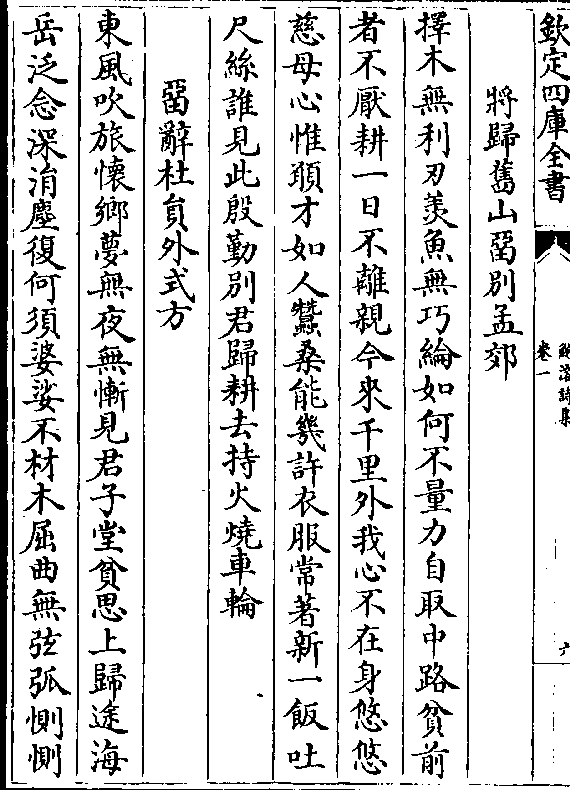 欽定四庫全書
鮑溶詩集
卷一
六
將歸舊山留別孟郊
擇木無利刃羨魚無巧綸如何不量力自取中路貧前
者不厭耕一日不離親今來千里外我心不在身悠悠
慈母心惟願才如人蠶桑能幾許衣服常著新一飯吐
尺絲誰見此殷勤別君歸耕去持火燒車輪
留辭杜員外式方
東風吹旅懷鄉夢無夜無慚見君子堂貧思上歸途海
岳泛念深涓塵復何須婆娑不材木屈曲無弦弧惻惻